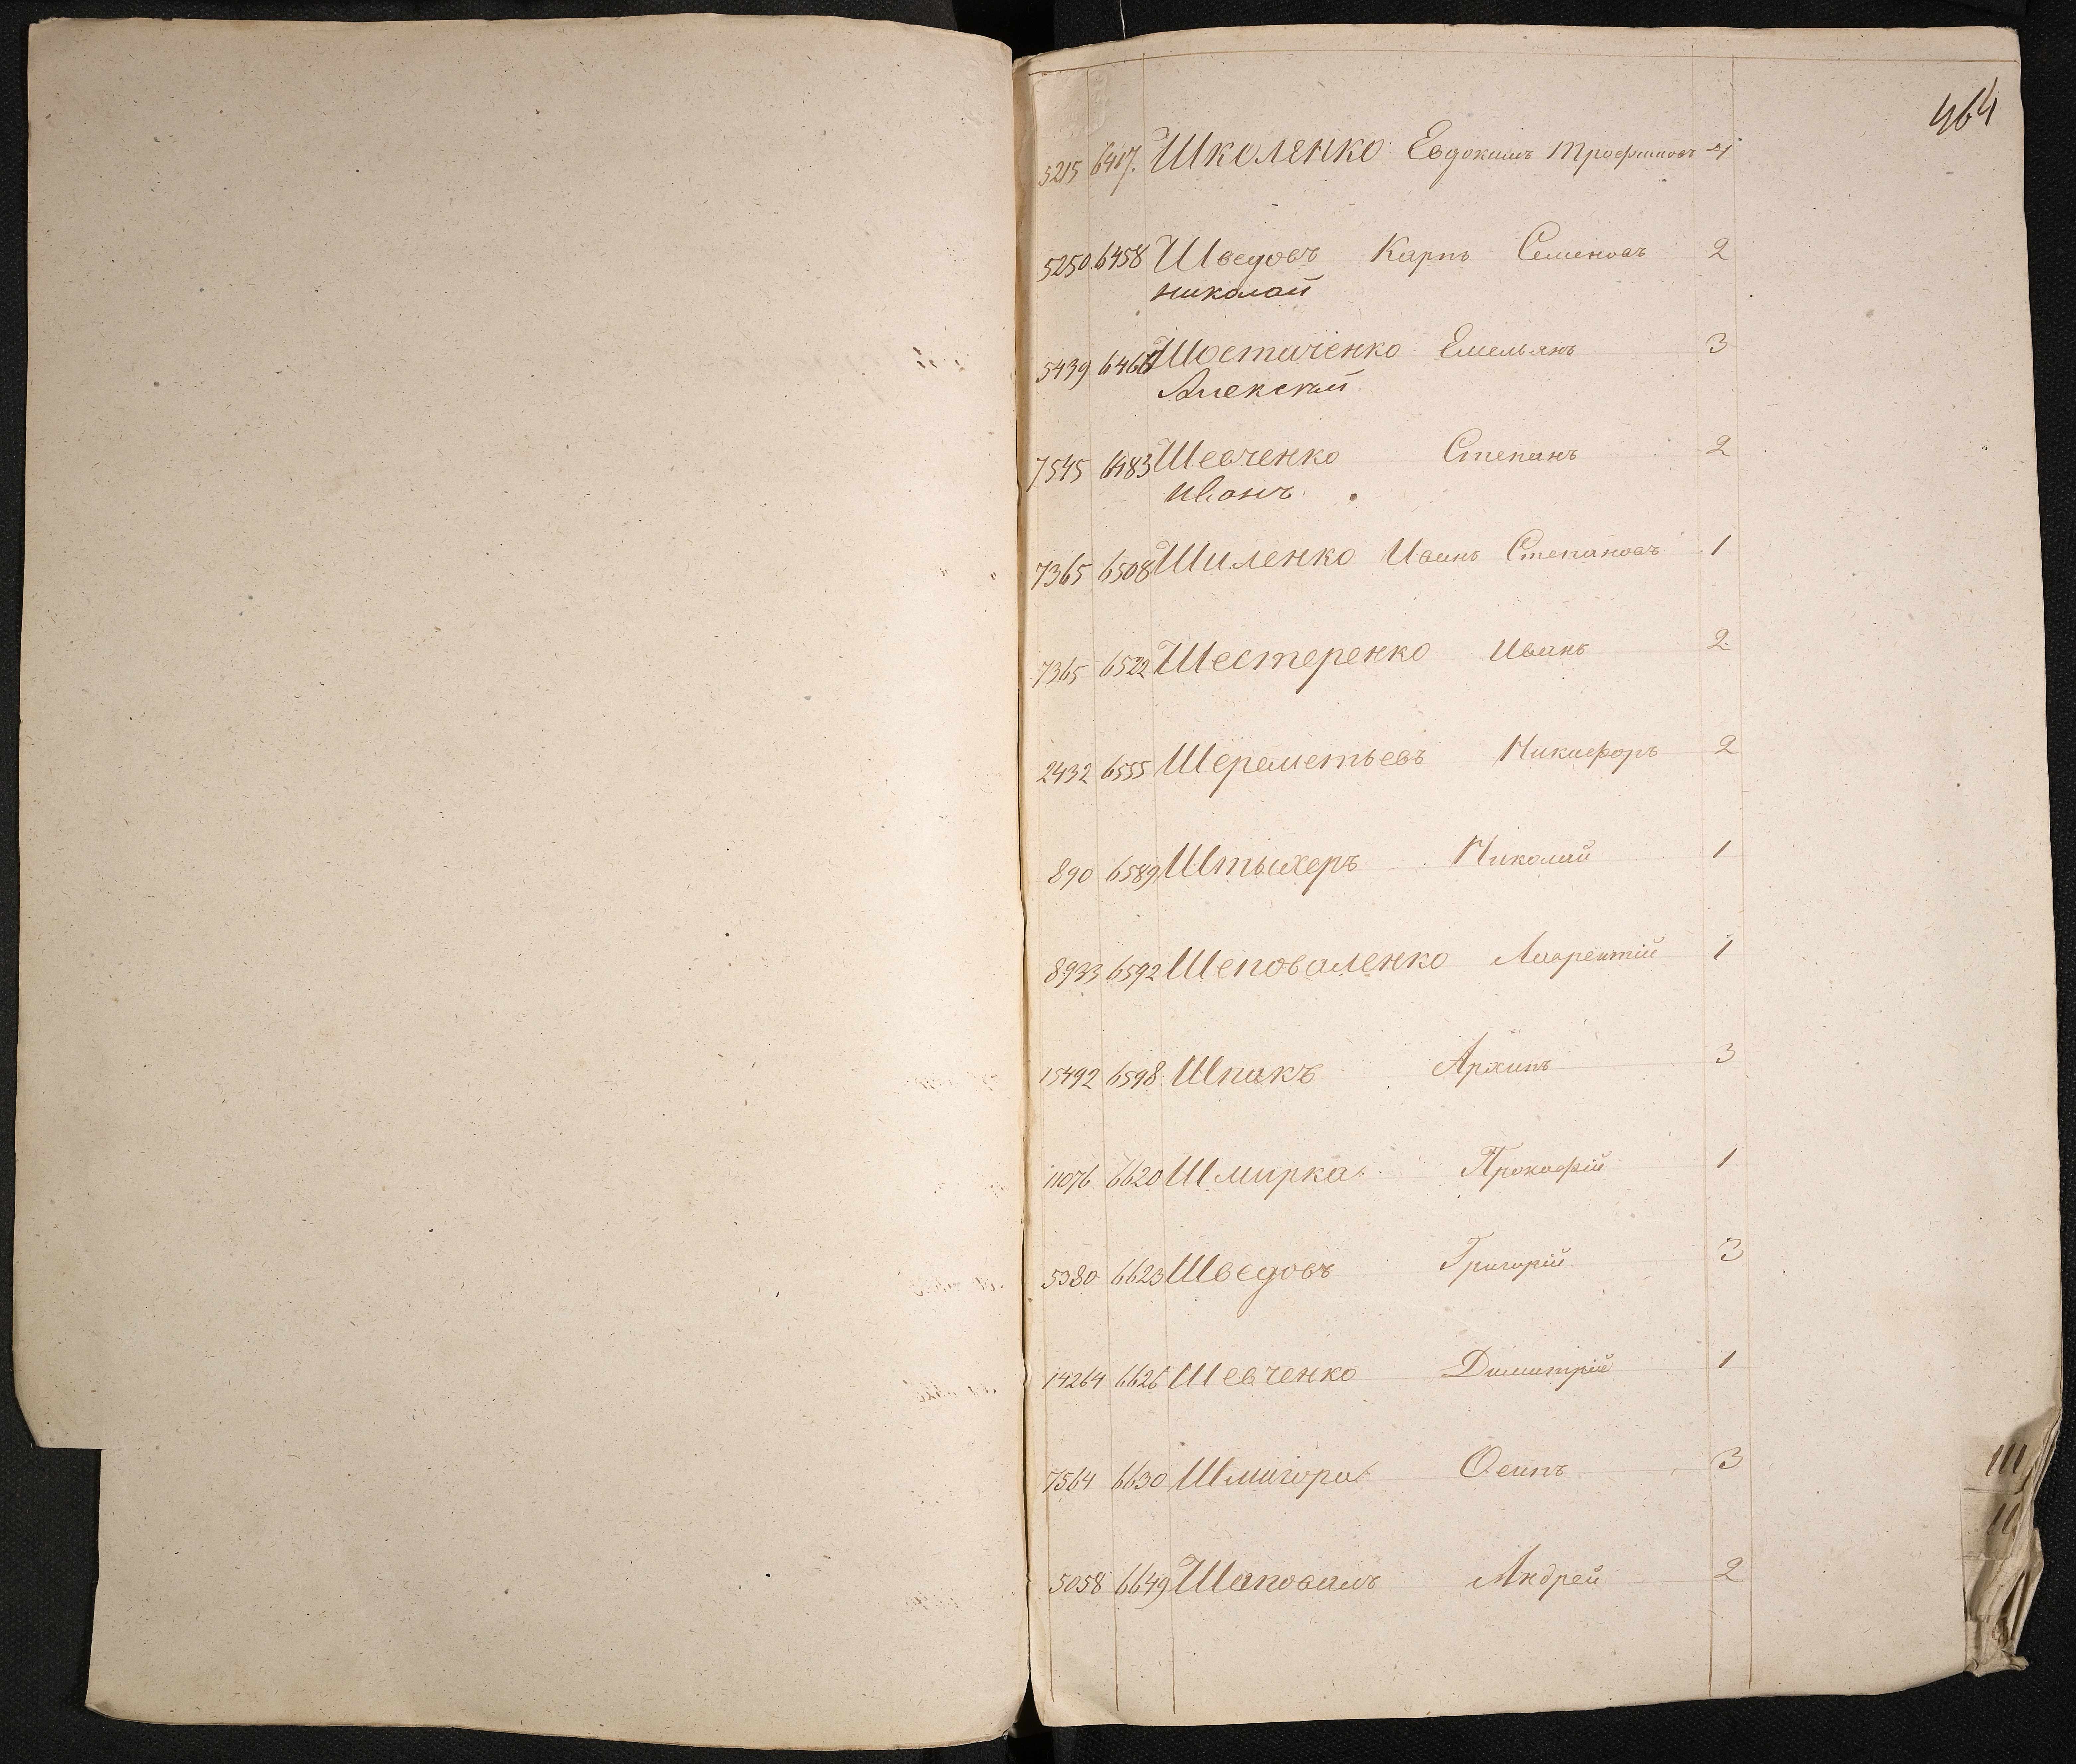 464
5215 6417. Школенко Евдокимъ Трофимовъ 4
5250 6458 Шведовъ Карпъ Семеновъ 2
Николай
5439 6466 Шостаченко Емельянъ 3
Алексѣй
7545 6483 Шевченко Степанъ 2
Иванъ
7365 6508 Шиленко Иванъ Степановъ 1
7365 6522 Шестеренко Иванъ 2
2432 6555 Шереметьевъ Никифоръ 2
890 6589 Штыхеръ Николай 1
8933 6592 Шеповаленко Лаврентій 1
15492 6598 Шпакъ Архипъ 3
11076 6620 Шмирка Прокофій 1
5380 6623 Шведовъ Григорій 3
14264 6626 Шевченко Димитрій 1
7564 6630 Шмигора Осипъ 3
5058 6649 Шаповалъ Андрей 2
Ш